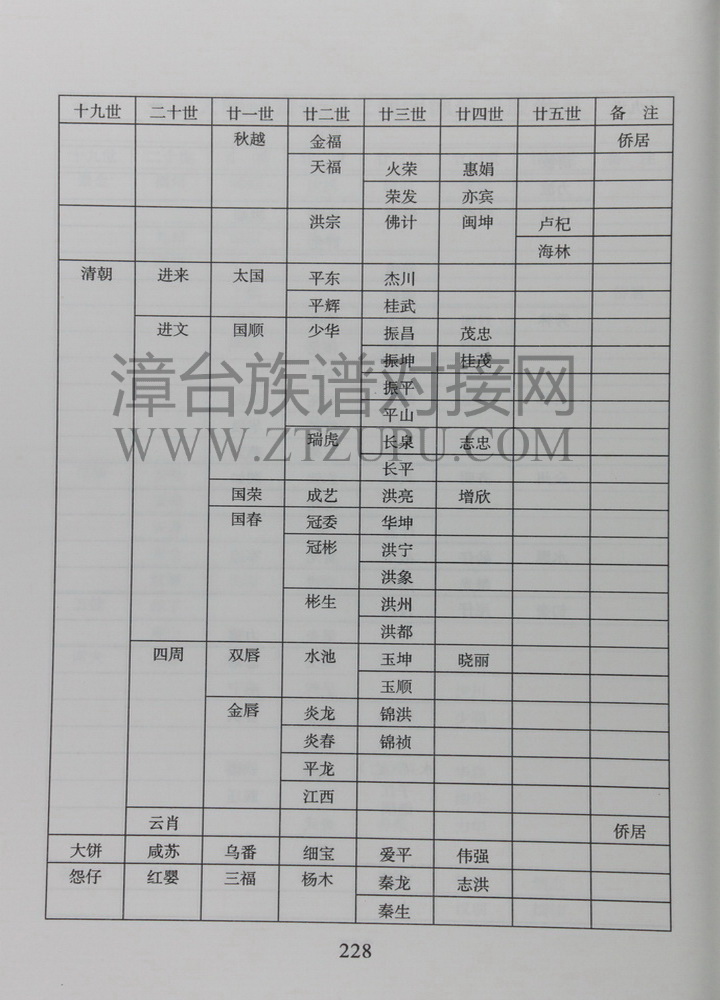 十九世 二十世 廿一世 廿二世 廿三世 廿四世 廿五世 备 注
秋越 金福 侨居
天福 火荣 惠娟
荣发 亦宾
洪宗 佛计 闽坤 卢杞
海林
清朝 进来 太国 平东 杰川
平辉 桂武
进文 国顺 少华 振昌 茂忠
振坤 桂茂
振平
平山
瑞虎 长泉 志忠
长平
国荣 成艺 洪亮 增欣
国春 冠委 华坤
冠彬 洪宁
洪象
彬生 洪州
洪都
四周 双唇 水池 玉坤 晓丽
玉顺
金唇 炎龙 锦洪
炎春 锦祯
平龙
江西
云肖 侨居
大饼 咸苏 乌番 细宝 爱平 伟强
怨仔 红婴 三福 杨木 秦龙 志洪
秦生
漳台族谱对接网
WWW.ZTZUPU.COM
228